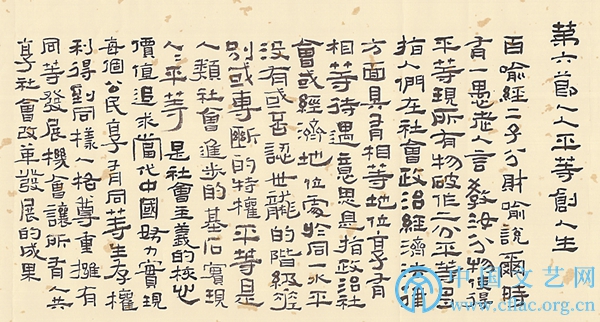 第六節人人平等創人生
百喻經二子分財喻說爾時
有一愚老人言教汝分物使得
平等現所有物破作二分平等是
指人們在社會政治經濟法律
方面具有相等地位享有
相等待遇意思是指政治社
會或經濟地位處於同一水平
沒有或否認世襲的階級差
別或專斷的特權平等是
人類社會進步的基石實現
人人平等是社會主義的核心
價值追求當代中國努力實現
每個公民享有同等生存權
利得到同樣人格尊重擁有
同等發展機會讓所有人共
享社會改革發展的成果
中国文艺网
www.cflac.org.cn